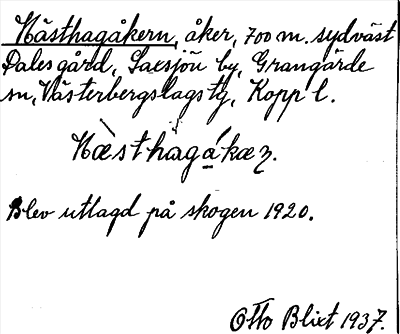 Nästhagåkern, åker, 700 m. sydväst
Dales gård, Saxsjön by, Grangärde
sn, Västerbergslags tg, Kopp l.
Næsthagakæɽ.
Blev utlagd på skogen 1920.
Otto Blixt 1937.